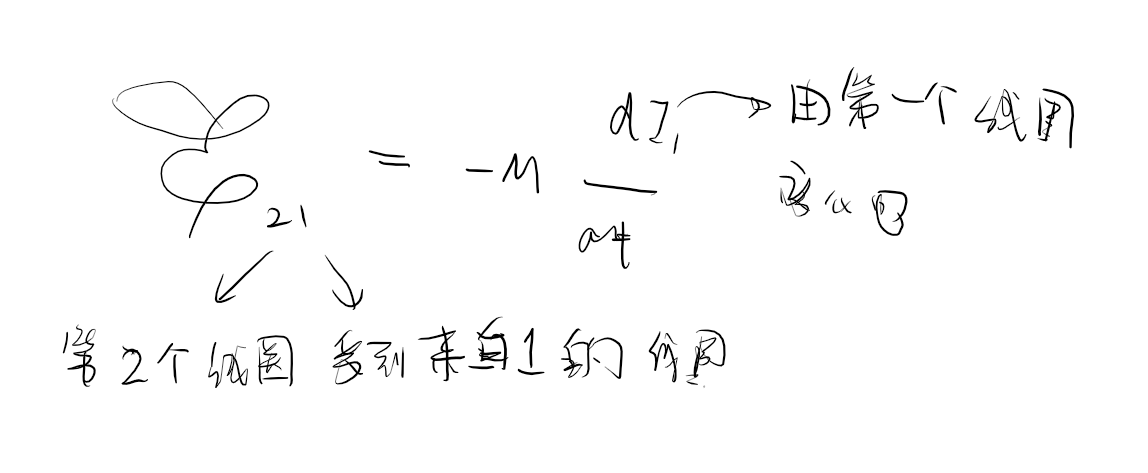 ℰ₂₁ = -M dI₁/dt → 由第一个线圈
第2个线圈 受到来自1的线圈